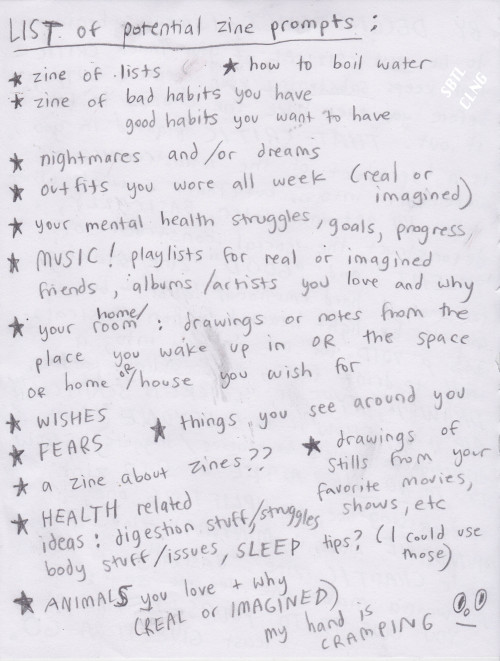 LIST of potential zine prompts:
★ zine of lists
★ how to boil water
★ zine of bad habits you have
good habits you want to have
SBTL
CLNG
★ nightmares and/or dreams
★ outfits you wore all week (real or
imagined)
★ your mental health struggles, goals, progress,
★ MUSIC! playlists for real or imagined
friends, albums/artists you love and why
★ your home/
room: drawings or notes from the
place you wake up in OR the space
OR home or/house you wish for
★ WISHES
★ things you see around you
★ FEARS
★ a zine about zines??
★ drawings of
stills from your
favorite movies,
shows, etc
★ HEALTH related
ideas: digestion stuff/struggles
body stuff/issues, SLEEP tips? (I could use
those)
★ ANIMALS you love + why
(REAL or IMAGINED)
my hand is
CRAMPING